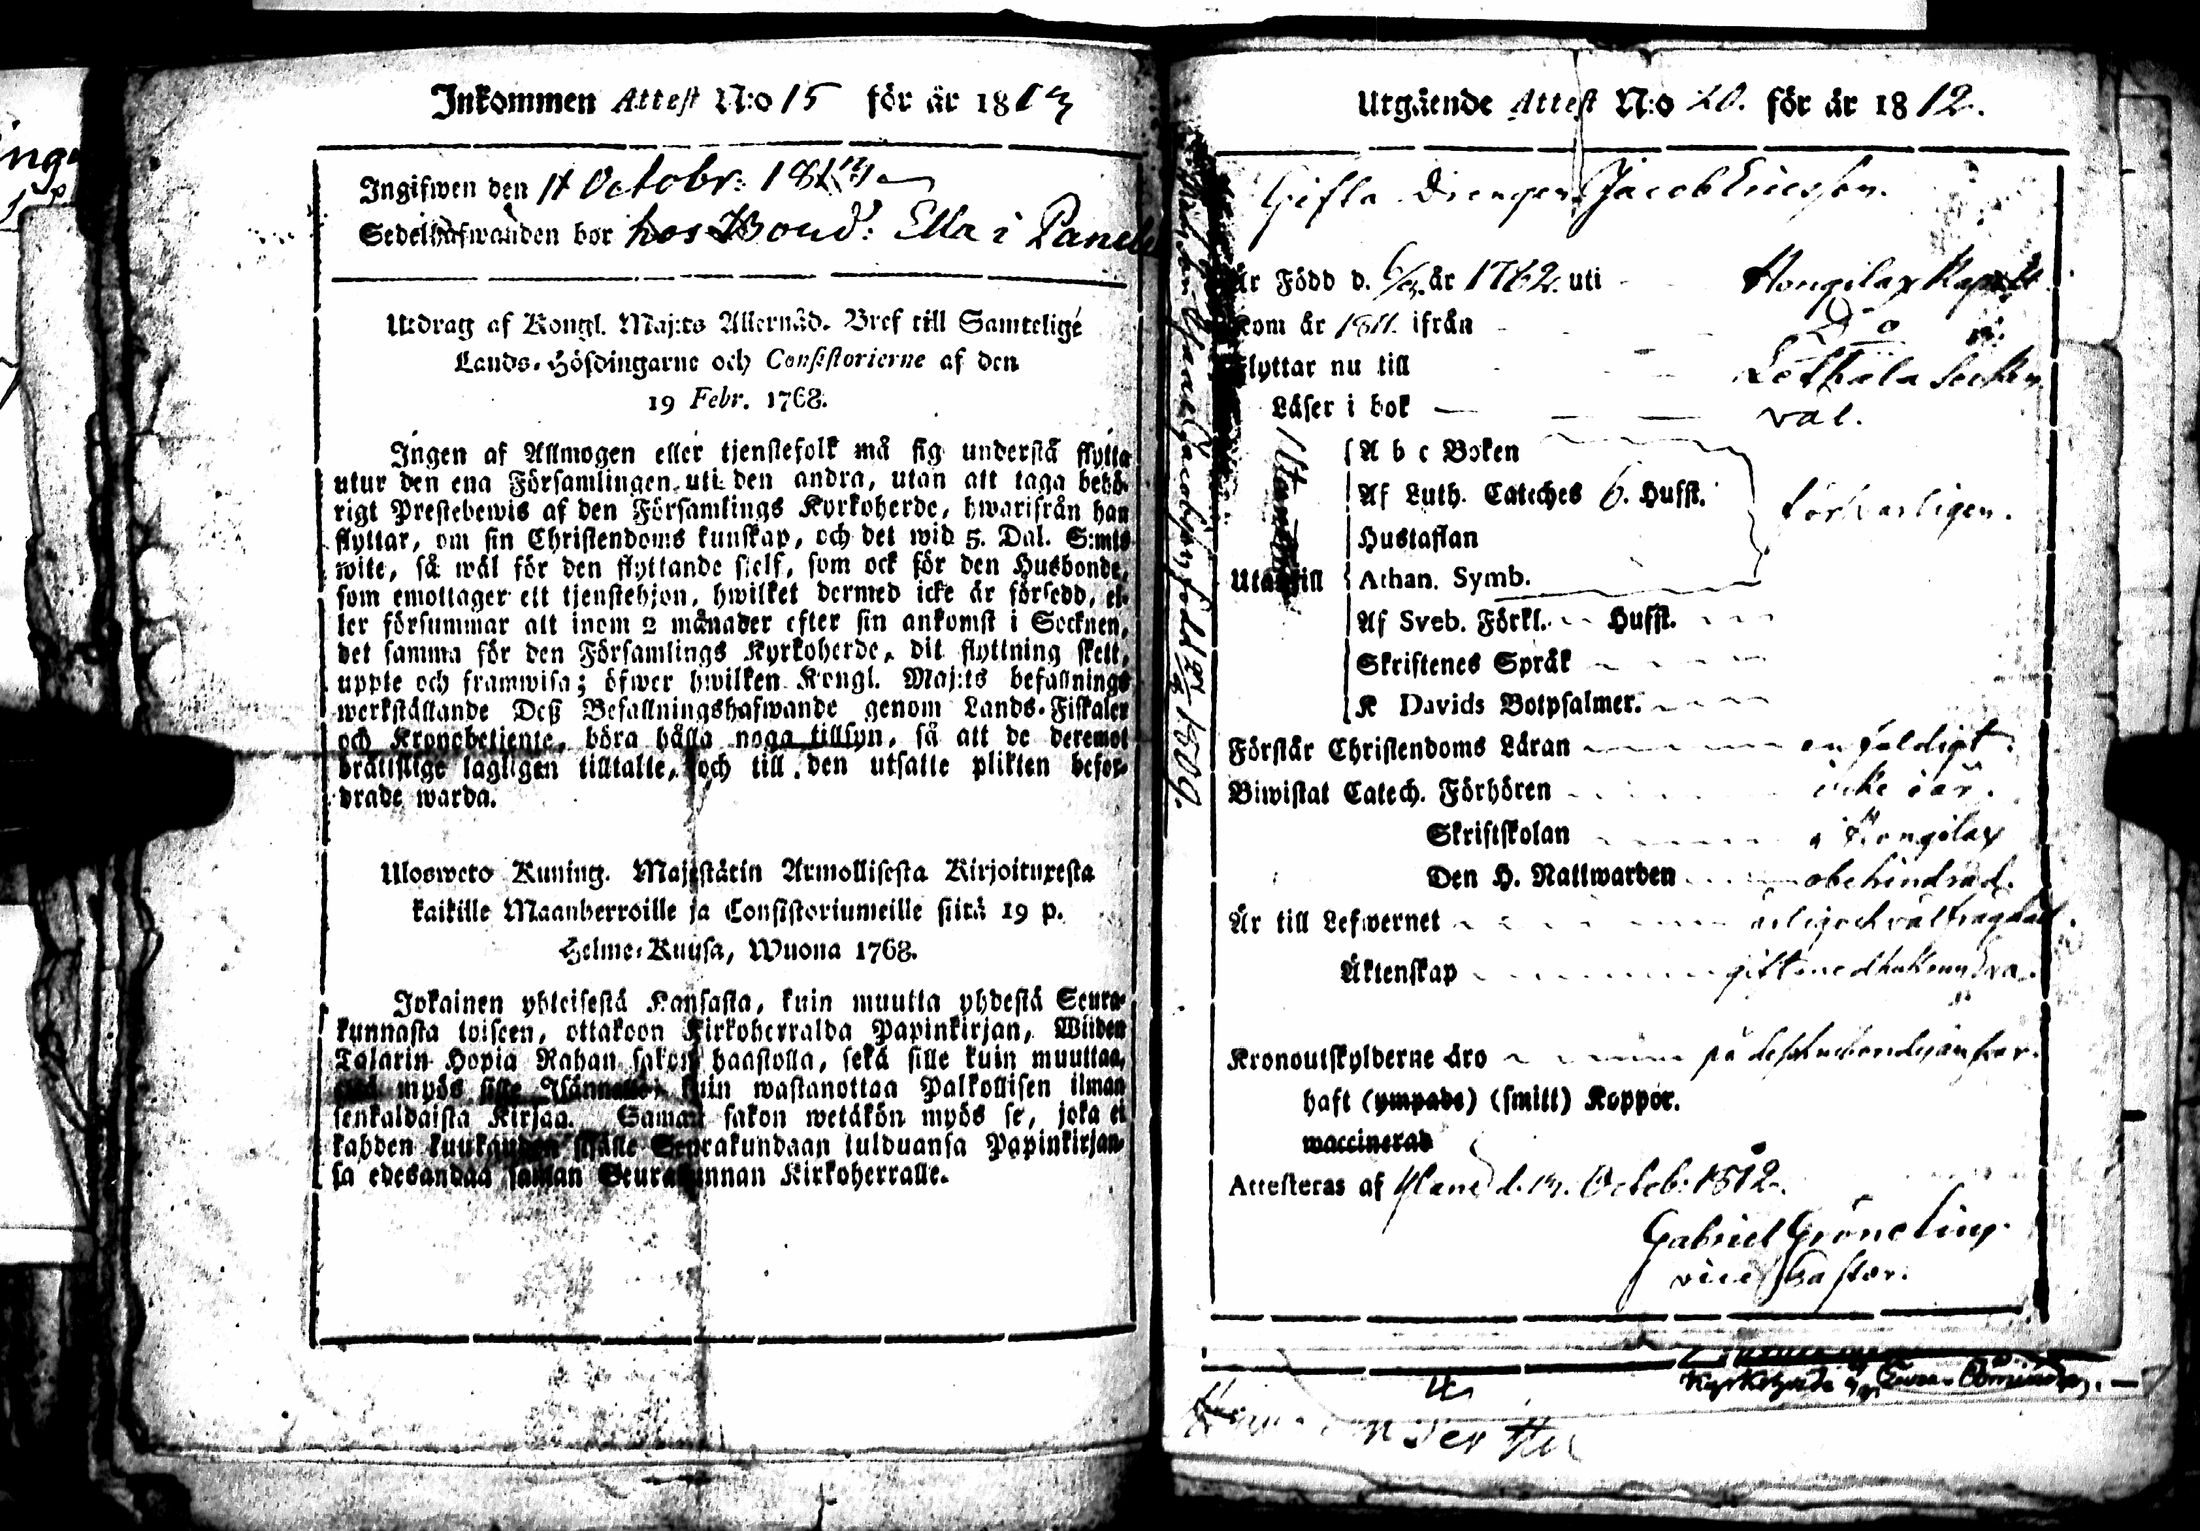 Inkommen Attest N:o 15 för år 1813
Ingifwen den 11 Octobr: 18
Sedelhafwanden bor hos Bond: Ella i
Utdrag af Kongl. Maj:ts Allernåd. Bref till Samtelige
Lands-Höfdingarne och Consistorierne af den
19 Febr. 1768.
Ingen af Allmogen eller tjenstefolk må sig understå flytta
utur den ena Församlingen uti den andra, utan att taga behö-
rigt Prestebewis af den Församlings Kyrkoherde, hwarifrån han
flyttar, om sin Christendoms kunskap, och det wid 5. Dal. S:mts
wite, så wäl för den flyttande sjelf, som ock för den Husbonde,
som emottager ett tjenstehjon, hwilket dermed icke är försedd, el-
ler försummar att inom 2 månader efter sin ankomst i Socknen,
det samma för den Församlings Kyrkoherde, dit flyttning skett,
uppte och framwisa; öfwer hwilken Kongl. Maj:ts befallnings
werkställande Deß Befallningshafwande genom Lands-Fiskaler
och Kronobetjente, böra hålla noga tillsyn, så att de deremot
brottslige lagligen tilltalte, och till den utsatte plikten befor-
drade warda.
Ulosweto Kuning. Majestätin Armollisesta Kirjoituxesta
kaikille Maanherroille ja Consistoriumeille siitä 19 p.
Helme-Kuusa, Wuona 1768.
Jokainen yhteisestä Kansasta, kuin muutta yhdestä Seura-
kunnasta toiseen, ottakoon Kirkoherralda Papinkirjan, Wiiden
Talarin Hopia Rahan sakon haastolla, sekä sille kuin muuttaa,
että myös sille Isännälle, kuin wastanottaa Palkollisen ilman
senkaldaista Kirjaa. Saman sakon wetäkön myös se, joka ei
kahden kuukauden sisälle Seurakundaan tulduansa Papinkirjan-
sa edesandaa saman Seurakunnan Kirkoherralle.
Utgående Attest N:o 20. för år 1812.
Gifta Drengen Jacob Ericsson.
Är Född d. 6/3 år 1762. uti Hongilax Kapell
Kom år 1811. ifrån Do
Flyttar nu till Lethala Socken
Läser i bok väl.
A b c Boken
Af Luth. Cateches 6. Hufst. försvarligen.
Hustaflan
Utantill Athan. Symb.
Af Sveb. Förkl. Hufst.
Skriftenes Språk
K Davids Botpsalmer.
Förstår Christendoms Läran enfaldigt.
Biwistat Catech. Förhören icke i år.
Skriftskolan i Hongilax
Den H. Nattwarden obehindrad.
Är till Lefwernet ärlig och välfrägdad.
Äktenskap gift med
Kronoutskylderne äro på dess husbondes ansvar.
haft (ympade) (smitt) Koppor.
waccinerad
Attesteras af Yläne d. 13. Octob: 1812.
Gabriel Gröneling
vice Pastor.
1809.